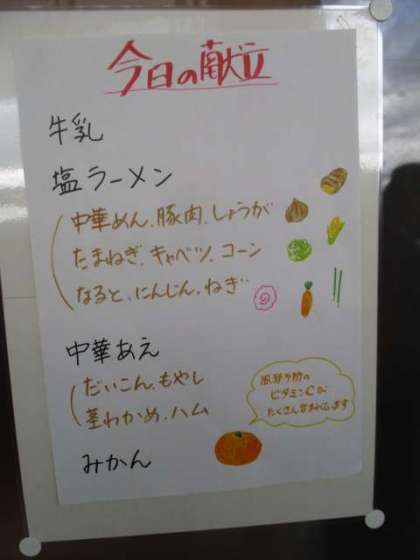 今日の献立
牛乳
塩ラーメン
中華めん、豚肉、しょうが
たまねぎ、キャベツ、コーン
なると、にんじん、ねぎ
中華あえ
だいこん、もやし
茎わかめ、ハム
みかん
風邪予防の
ビタミンCが
たくさん含まれています